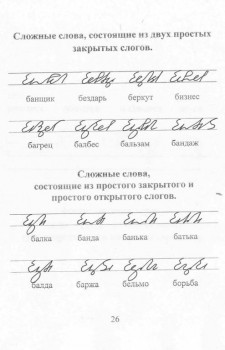 Сложные слова, состоящие из двух простых
закрытых слогов.
банщик бездарь беркут бизнес
багрец балбес бальзам бандаж
Сложные слова,
состоящие из простого закрытого и
простого открытого слогов.
балка банда банька батька
балда баржа бельмо борьба
26